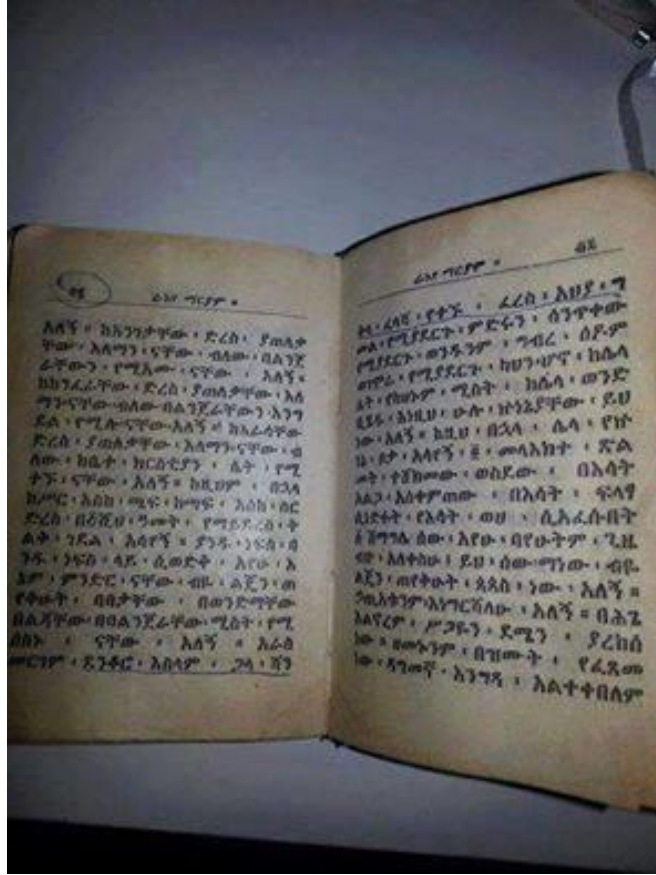 ራእየ ማርያም ።
አለኝ ። ከአንገታቸው ፡ ድረስ ፡ ያጠለቃ
ቸው ፡ እለማን ፡ ናቸው ፡ ብለው ፡ በልንጀ
ራቸውን ፡ የሚያሙ ፡ ናቸው ፡ አለኝ ።
ከከንፈራቸው ፡ ድረስ ፡ ያጠለቃቸው ፡ እለ
ማን ፡ ናቸው ፡ ብለው ፡ በልንጀራቸውን ፡ እንግ
ደል ፡ የሚሉ ፡ ናቸው ፡ አለኝ ። ከእራሳቸው
ድረስ ፡ ያጠለቃቸው ፡ እለማን ፡ ናቸው ፡ ብ
ለው ፡ ከቤተ ፡ ክርስቲያን ፡ ሴት ፡ የሚ
ተኙ ፡ ናቸው ፡ አለኝ ። ከዚህም ፡ በኋላ
ከሥር ፡ እስከ ፡ ጫፍ ፡ ከጫፍ ፡ እስከ ፡ ስር
ድረስ ፡ በሺህ ፡ ዓመት ፡ የማይደረስ ፡ ጥ
ልቅ ፡ ገደል ፡ አሳየኝ ። ያንዱ ፡ ነፍስ ፡ በ
ንዱ ፡ ነፍስ ፡ ላይ ፡ ሲወድቅ ፡ አየሁ ፡ እ
ኔም ፡ ምንድር ፡ ናቸው ፡ ብዬ ፡ ልጄን ፡ ጠ
የቅሁት ፡ በባቃቸው ፡ በወንድማቸው
በልጃቸው ፡ በባልንጀራቸው ፡ ሚስት ፡ የሚ
ሰስኑ ፡ ናቸው ፡ አለኝ ። እራስ
መርገም ፡ ጴንቆሮ ፡ እስላም ፡ ጋላ ፡ ሻን
ራእየ ማርያም ።
ቅላ ፡ ፈላሻ ፡ የተኙ ፡ ፈረስ ፡ አህያ ፡ ግ
መል ፡ የሚያደርጉ ፡ ምድሩን ፡ ሰንጥቀው
የሚያደርጉ ፡ ወንዱንም ፡ ግብረ ፡ ሰዶም
ወገሞራ ፡ የሚያደርጉ ፡ ከህንሆኖ ፡ ከሌላ
ሴት ፡ የካህኑም ፡ ሚስት ፡ ከሌላ ፡ ወንድ
ቢሄዱ ፡ እነዚህ ፡ ሁሉ ፡ ኵነኔያቸው ፡ ይህ
ነው ፡ አለኝ ። ከዚህ ፡ በኋላ ፡ ሌላ ፡ የኵ
ነኔ ፡ ቦታ ፡ አሳየኝ ፡ ፪ ፡ መላእክተ ፡ ጽል
መት ፡ ተሸክመው ፡ ወስደው ፡ በእሳት
አልጋ ፡ አስቀምጠው ፡ በእሳት ፡ ፍላፃ
ሲነድፉት ፡ የእሳት ፡ ወሀ ፡ ሲአፈሱበት
፩ ሽማግሌ ሰው ፡ አየሁ ፡ ባየሁትም ፡ ጊዜ
ብዙ ፡ አለቀስሁ ፡ ይህ ፡ ሰው ፡ ማነው ፡ ብዬ
ልጄን ፡ ጠየቅሁት ፡ ጳጳስ ፡ ነው ፡ አለኝ ።
ኃጢአቱንም ፡ እነግርሻለሁ ፡ አለኝ ። በሕጌ
አልኖረም ፡ ሥጋዬን ፡ ደሜን ፡ ያረከሰ
ነው ። ዘመኑንም ፡ በዝሙት ፡ የፈጸመ
ነው ፡ ዳግመኛ ፡ እንግዳ ፡ አልተቀበለም